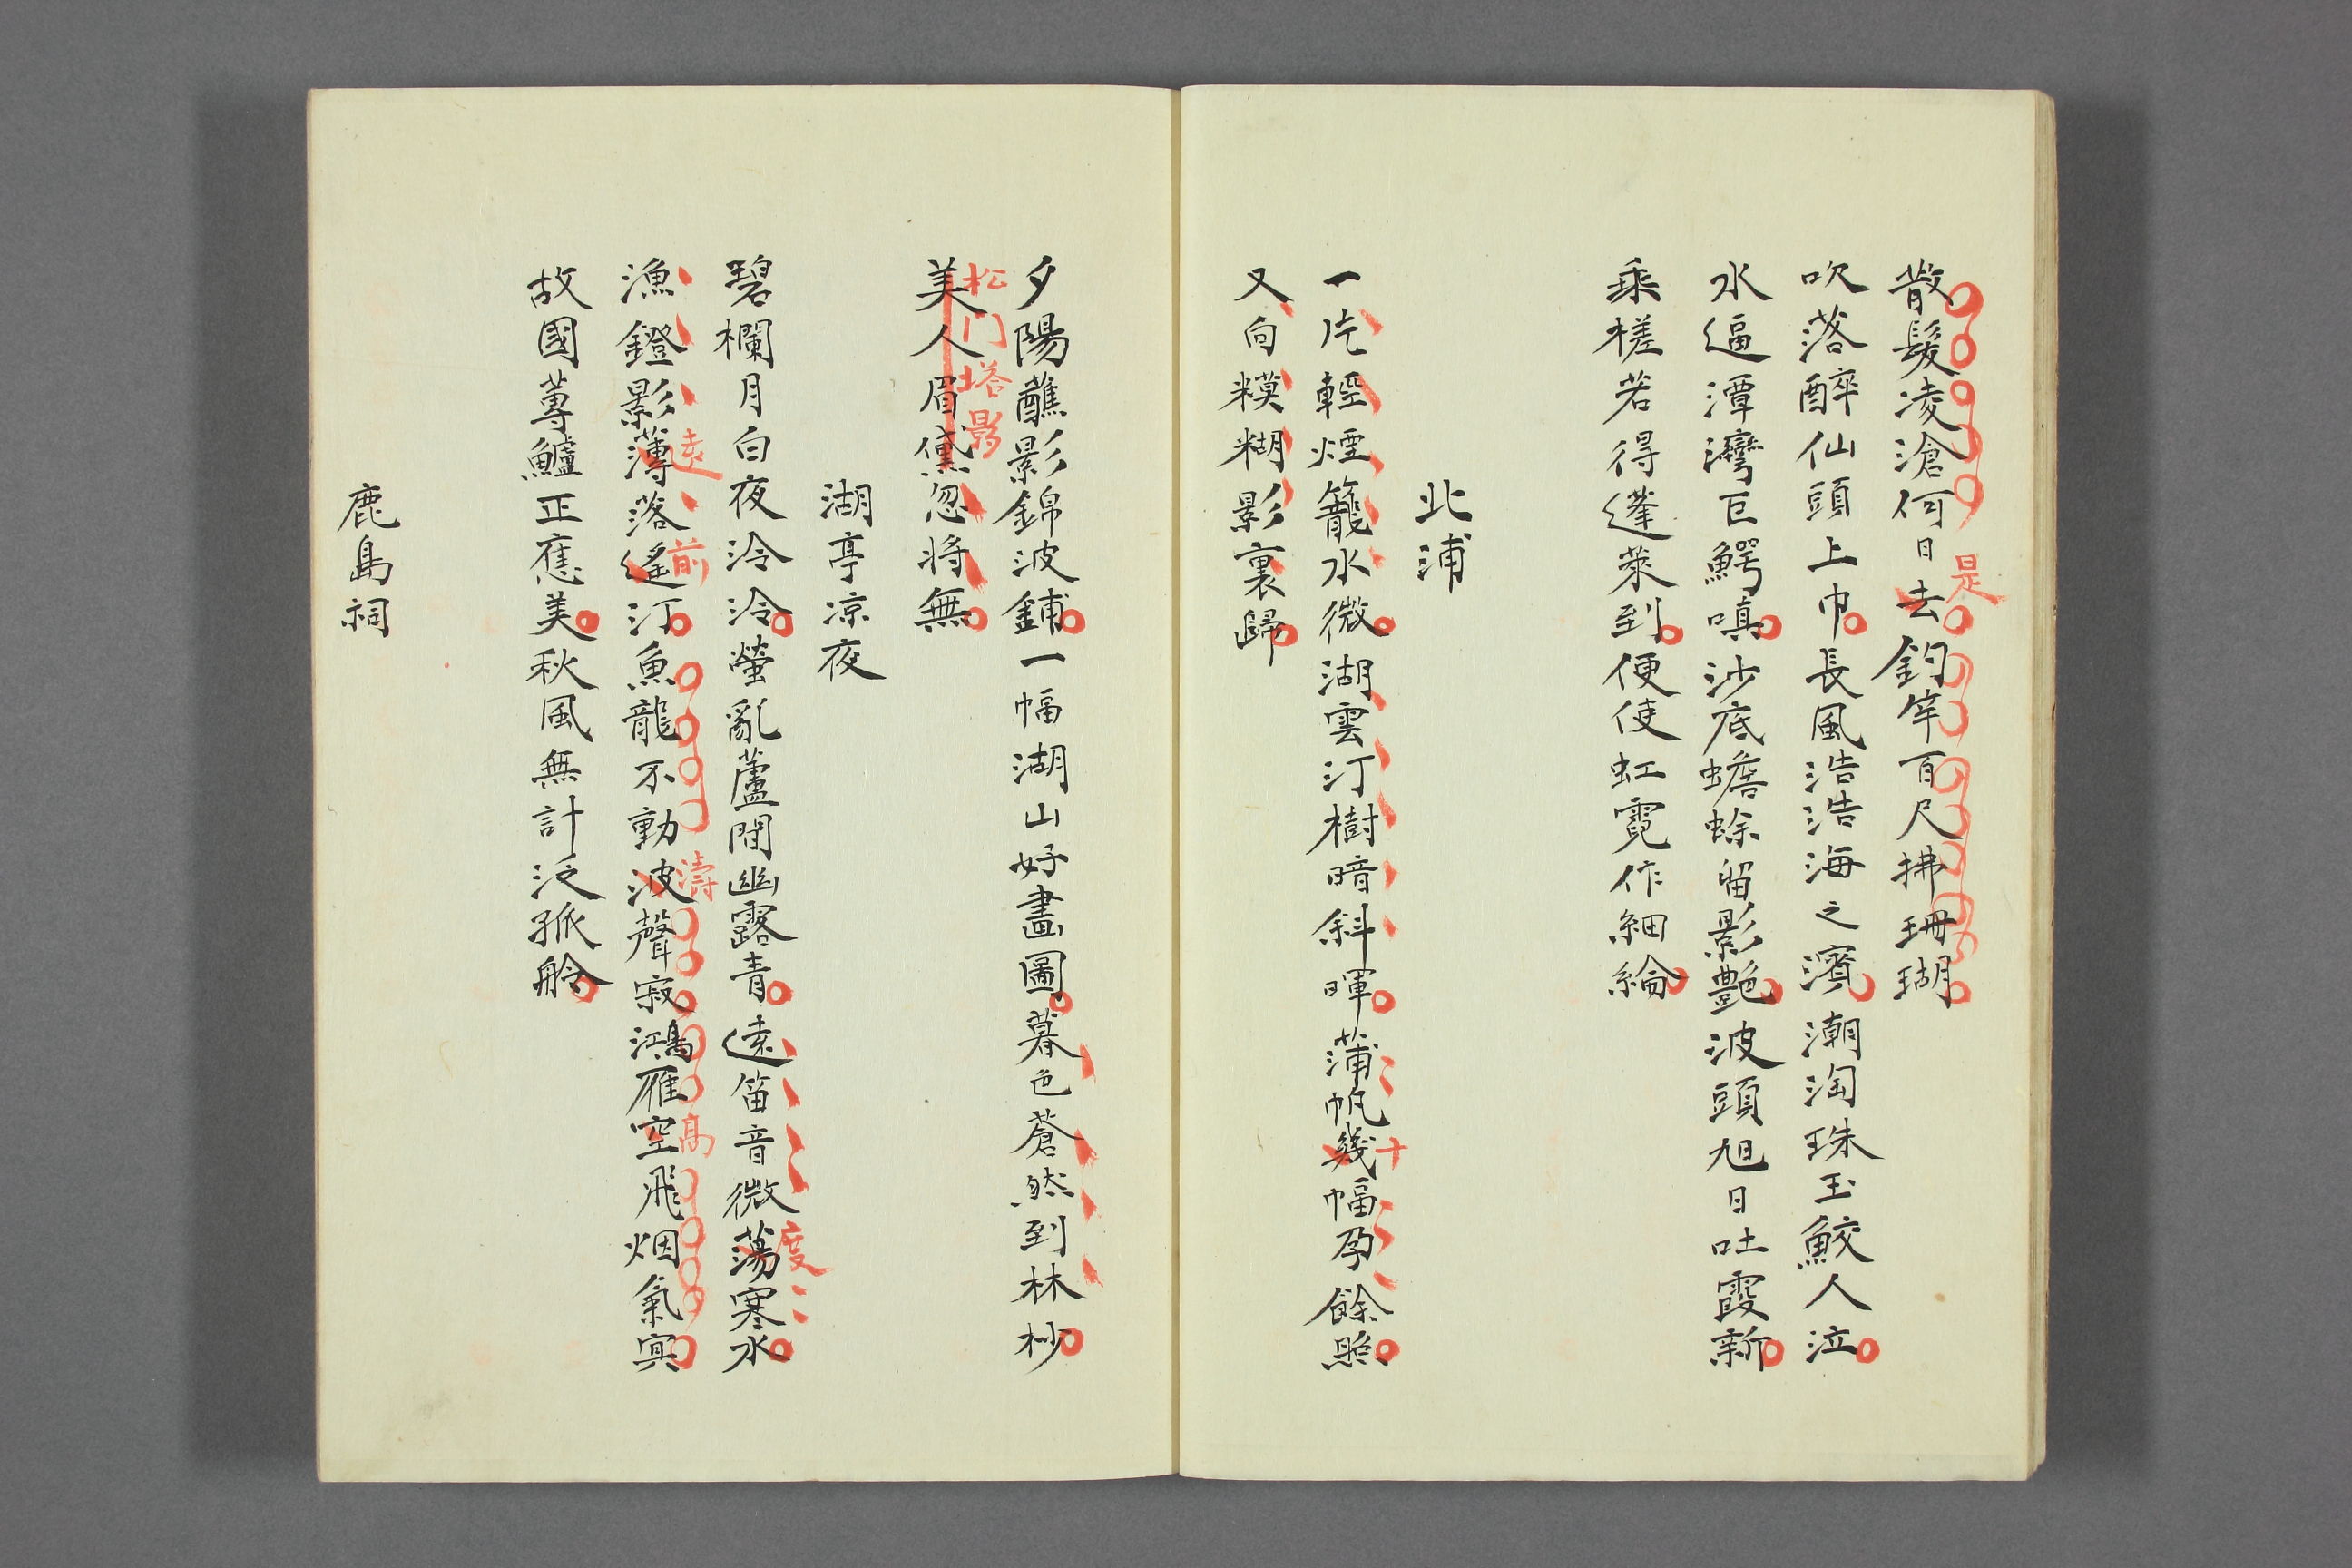 散髮凌滄何日去釣竿百尺拂珊瑚
是
吹落醉仙頭上巾長風浩浩海之濱潮淘珠玉鮫人泣
水逼潭灣巨鰐嗔沙底蟾蜍留影艷波頭旭日吐霞新
乘槎若得蓬萊到便使虹霓作細綸
北浦
一片輕煙籠水微湖雲汀樹暗斜暉蒲帆幾幅孕餘照
十
又向糢糊影裏歸
夕陽蘸影錦波鋪一幅湖山好畫圖暮色蒼然到林杪
松门塔影
美人眉黛忽將無
湖亭凉夜
碧欄月白夜泠泠螢亂蘆閒幽露青遠笛音微蕩寒水
度
漁鐙影薄落遙汀魚龍不動波聲寂鴻雁空飛烟氣冥
遠前濤高
故國蓴鱸正應美秋風無計泛孤舲
鹿島祠